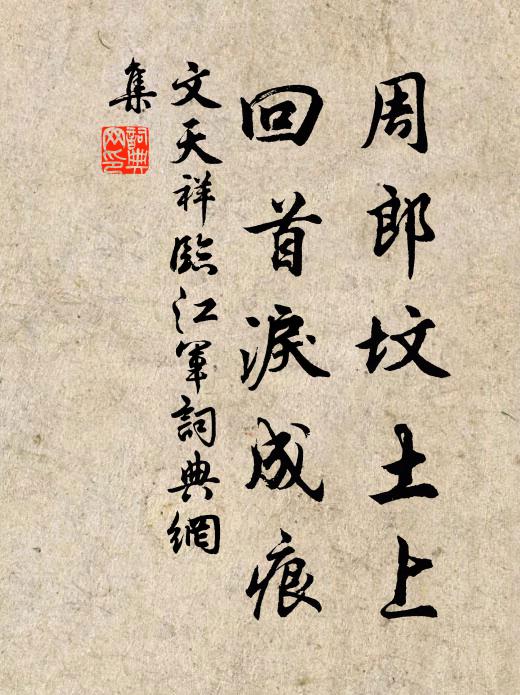 周郎坟土上
回首淚成痕
文天祥臨江軍詞典網
集
詞典网印